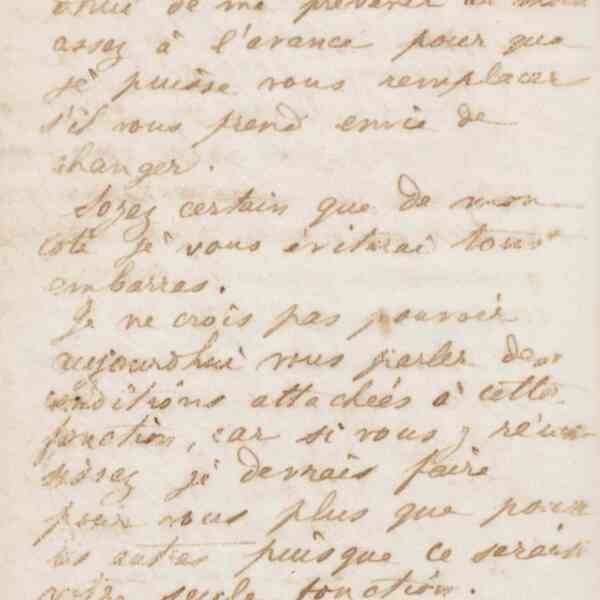 de me prévenir au moins
assez à l'avance pour que
je puisse vous remplacer
s'il vous prend envie de
changer.
Soyez certain que de mon
coté je vous éviterai tout
embarras.
Je ne crois pas pouvoir
aujourdhui vous parler des
conditions attachées à cette
fonction, car si vous y réus-
sissez je devrais faire
pour vous plus que pour
les autres puisque ce serait
votre seule fonction.